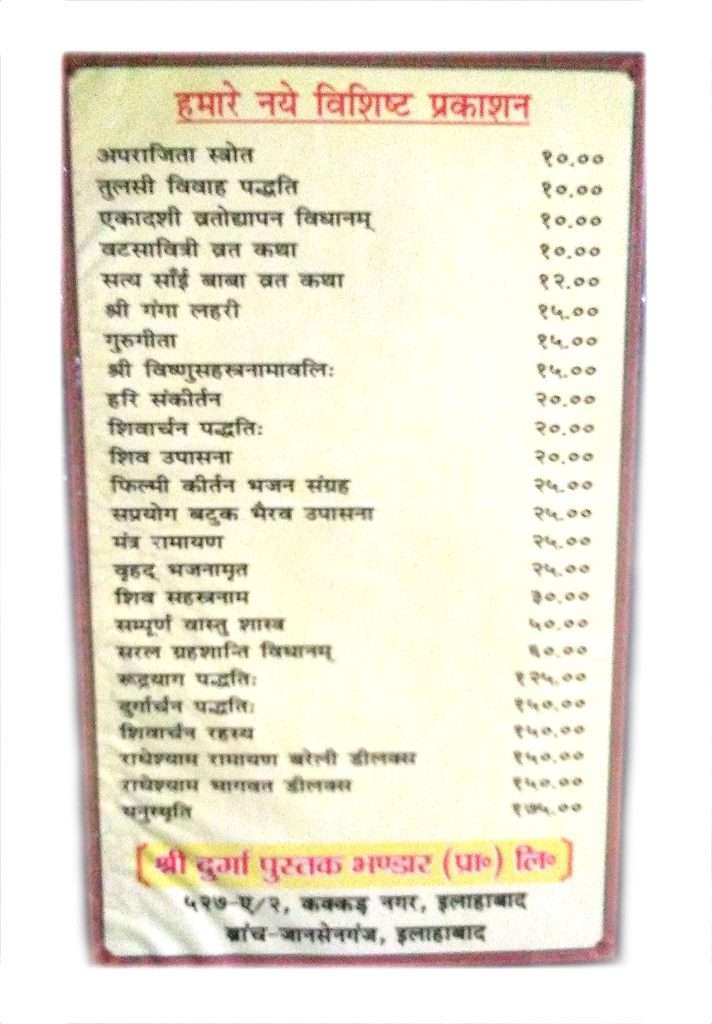 हमारे नये विशिष्ट प्रकाशन
अपराजिता स्त्रोत १०.००
तुलसी विवाह पद्धति १०.००
एकादशी व्रतोद्यापन विधानम् १०.००
वटसावित्री व्रत कथा १०.००
सत्य साँई बाबा व्रत कथा १२.००
श्री गंगा लहरी १५.००
गुरुगीता १५.००
श्री विष्णुसहस्त्रनामावलिः १५.००
हरि संकीर्तन २०.००
शिवार्चन पद्धतिः २०.००
शिव उपासना २०.००
फिल्मी कीर्तन भजन संग्रह २५.००
सप्रयोग बटुक भैरव उपासना २५.००
मंत्र रामायण २५.००
वृहद् भजनामृत २५.००
शिव सहस्त्रनाम ३०.००
सम्पूर्ण वास्तु शास्त्र ५०.००
सरल ग्रहशान्ति विधानम् ६०.००
रूद्रयाग पद्धतिः १२५.००
दुर्गार्चन पद्धतिः १५०.००
शिवार्चन रहस्य १५०.००
राधेश्याम रामायण बरेली डीलक्स १५०.००
राधेश्याम भागवत डीलक्स १५०.००
मनुस्मृति १७५.००
[श्री दुर्गा पुस्तक भण्डार (प्रा॰) लि॰]
५२७-ए/२, कक्कड़ नगर, इलाहाबाद
ब्रांच-जानसेनगंज, इलाहाबाद